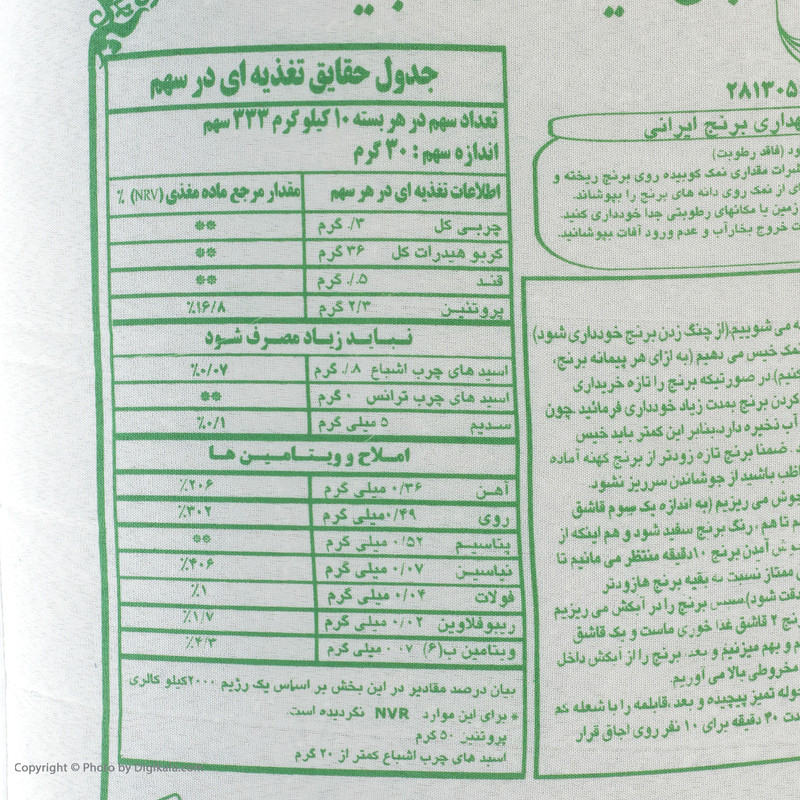 جدول حقایق تغذیه ای در سهم
تعداد سهم در هر بسته ۱۰ کیلو گرم ۳۳۳ سهم
اندازه سهم : ۳۰ گرم
اطلاعات تغذیه ای در هر سهم مقدار مرجع ماده مغذی (NRV) ٪
چربی کل ۰/۳ گرم **
کربو هیدرات کل ۳۶ گرم **
قند ۰/۵ گرم **
پروتئین ۲/۳ گرم ٪۱۶/۸
نباید زیاد مصرف شود
اسید های چرب اشباع ۰/۸ گرم ٪۰/۰۷
اسید های چرب ترانس ۰ گرم **
سدیم ۵ میلی گرم ٪۰/۱
املاح و ویتامین ها
آهن ۰/۳۶ میلی گرم ٪۲۰۶
روی ۰/۴۹ میلی گرم ٪۳۰۲
پتاسیم ۰/۵۲ میلی گرم **
نیاسین ۰/۰۷ میلی گرم ٪۴۰۶
فولات ۰/۰۴ میلی گرم ٪۱
ریبوفلاوین ۰/۰۲ میلی گرم ٪۱/۷
ویتامین ب(۶) ۰۰۷ میلی گرم ٪۴/۳
بیان درصد مقادیر در این بخش بر اساس یک رژیم ۲۰۰۰کیلو کالری
* برای این موارد NVR نگردیده است.
پروتئین ۵۰ گرم
اسید های چرب اشباع کمتر از ۲۰ گرم
۲۸۱۳۰۵
برنج ایرانی
(فاقد رطوبت)
مقداری نمک کوبیده روی برنج ریخته و
ای از نمک روی دانه های برنج را بپوشاند.
زمین یا مکانهای رطوبتی جدا خودداری کنید.
خروج بخارآب و عدم ورود آفات بپوشانید.
می شوییم(از چنگ زدن برنج خودداری شود)
نمک خیس می دهیم (به ازای هر پیمانه برنج،
کنیم) در صورتیکه برنج را تازه خریداری
کردن برنج بمدت زیاد خودداری فرمائید چون
آب نخیره دارد،بنابر این کمتر باید خیس
ضمنا برنج تازه زودتر از برنج کهنه آماده
باشید از جوشاندن سرریز نشود.
جوش می ریزیم (به اندازه یک سوم قاشق
تا هم ، رنگ برنج سفید شود و هم اینکه از
آمدن برنج ۱۰دقیقه منتظر می مانیم تا
ممتاز نسبت به بقیه برنج هازودتر
دقت شود)سپس برنج را در آبکش می ریزیم
۲ قاشق غذا خوری ماست و یک قاشق
و بهم میزنیم و بعد، برنج را از آبکش داخل
مخروطی بالا می آوریم.
حوله تمیز پیچیده و بعد،قابلمه را با شعله کم
۴۰ دقیقه برای ۱۰ نفر روی اجاق قرار
Copyright © Photo by Digikala.com